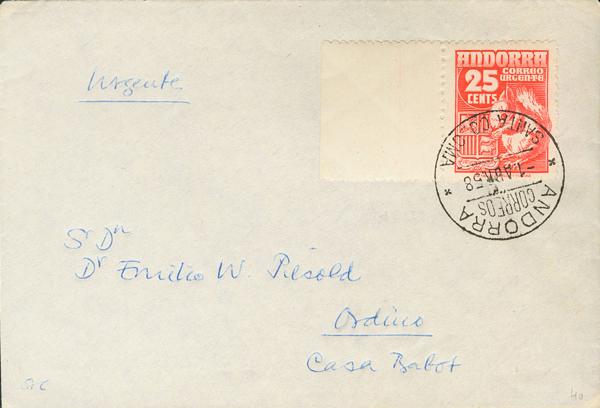 Urgente
ANDORRA
CORREO
URGENTE
25
CENTS
SANTA COLOMA
-1. ABR. 58
CORREOS
* ANDORRA *
Sr Dn
Dr Emilio W. Piésold
Ordino
Casa Babot
40